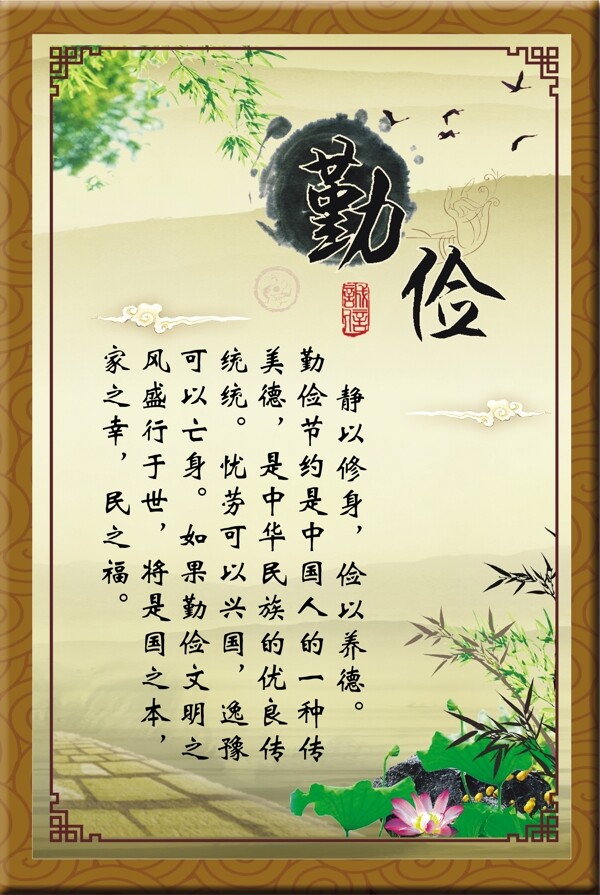 勤俭
誠信
静以修身，俭以养德。
勤俭节约是中国人的一种传
美德，是中华民族的优良传
统统。忧劳可以兴国，逸豫
可以亡身。如果勤俭文明之
风盛行于世，将是国之本，
家之幸，民之福。